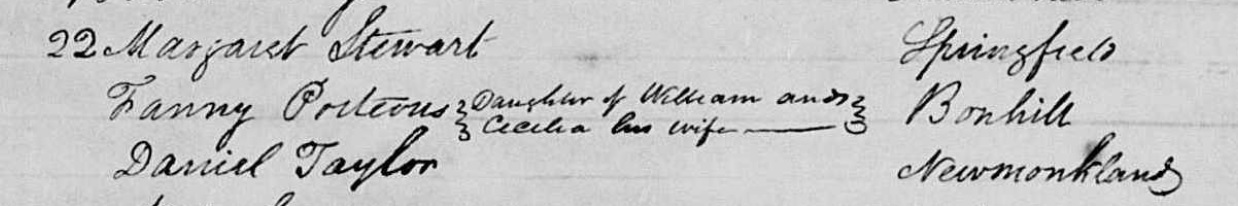 22 Margaret Stewart Springfield
Fanny Porteous { Daughter of William and } Bonhill
Cecilia his wife
Daniel Taylor Newmonkland